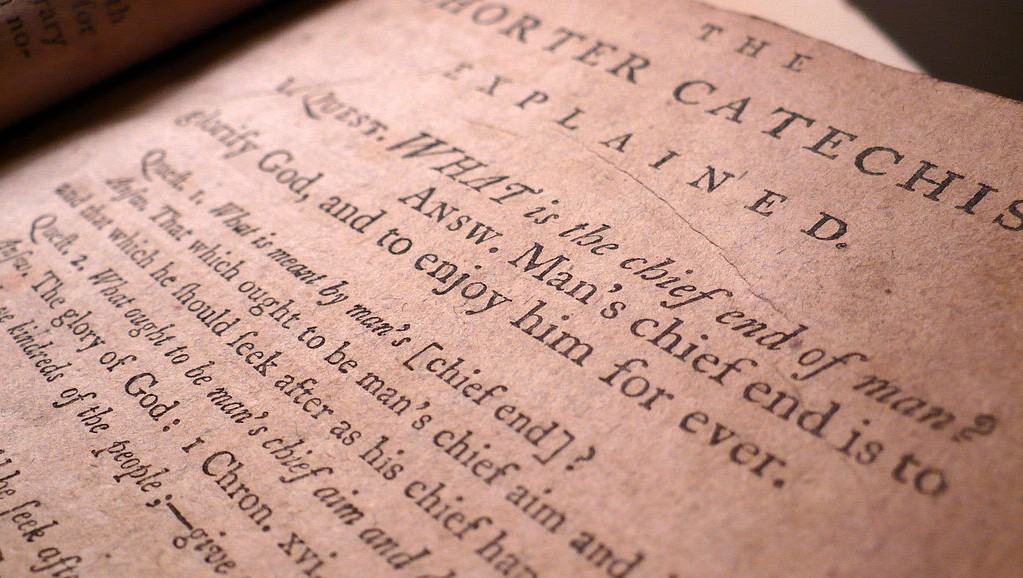 THE
HORTER CATECHIS
EXPLAINED.
1. QUEST. WHAT is the chief end of man?
ANSW. Man's chief end is to
glorify God, and to enjoy him for ever.
Queſt. 1. What is meant by man's [chief end]?
Anſw. That which ought to be man's chief aim and
and that which he ſhould ſeek after as his chief hap
Queſt. 2. What ought to be man's chief aim and d
Anſw. The glory of God: 1 Chron. xvi.
kindreds of the people;—give
he ſeek afte
th
for
rary
no-